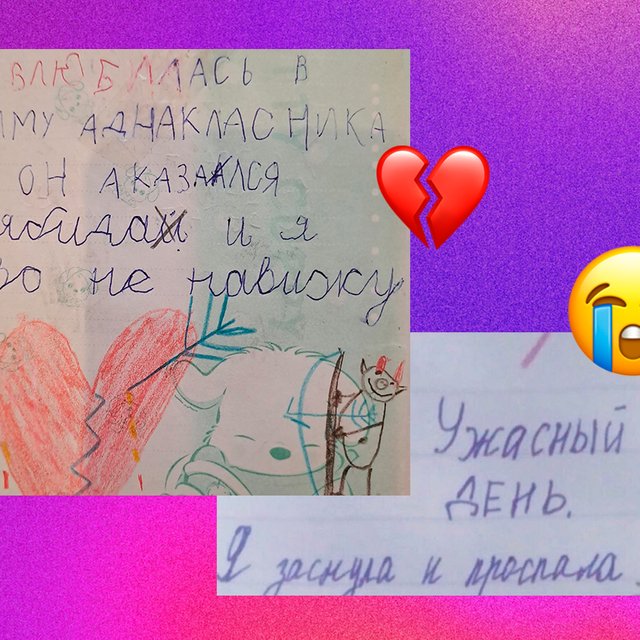 ВЛЮБИЛАСЬ В
АДНАКЛАСНИКА
ОН АКАЗАЛСЯ
и я
не навижу
Ужасный
ДЕНЬ.
Я заснула и проспала